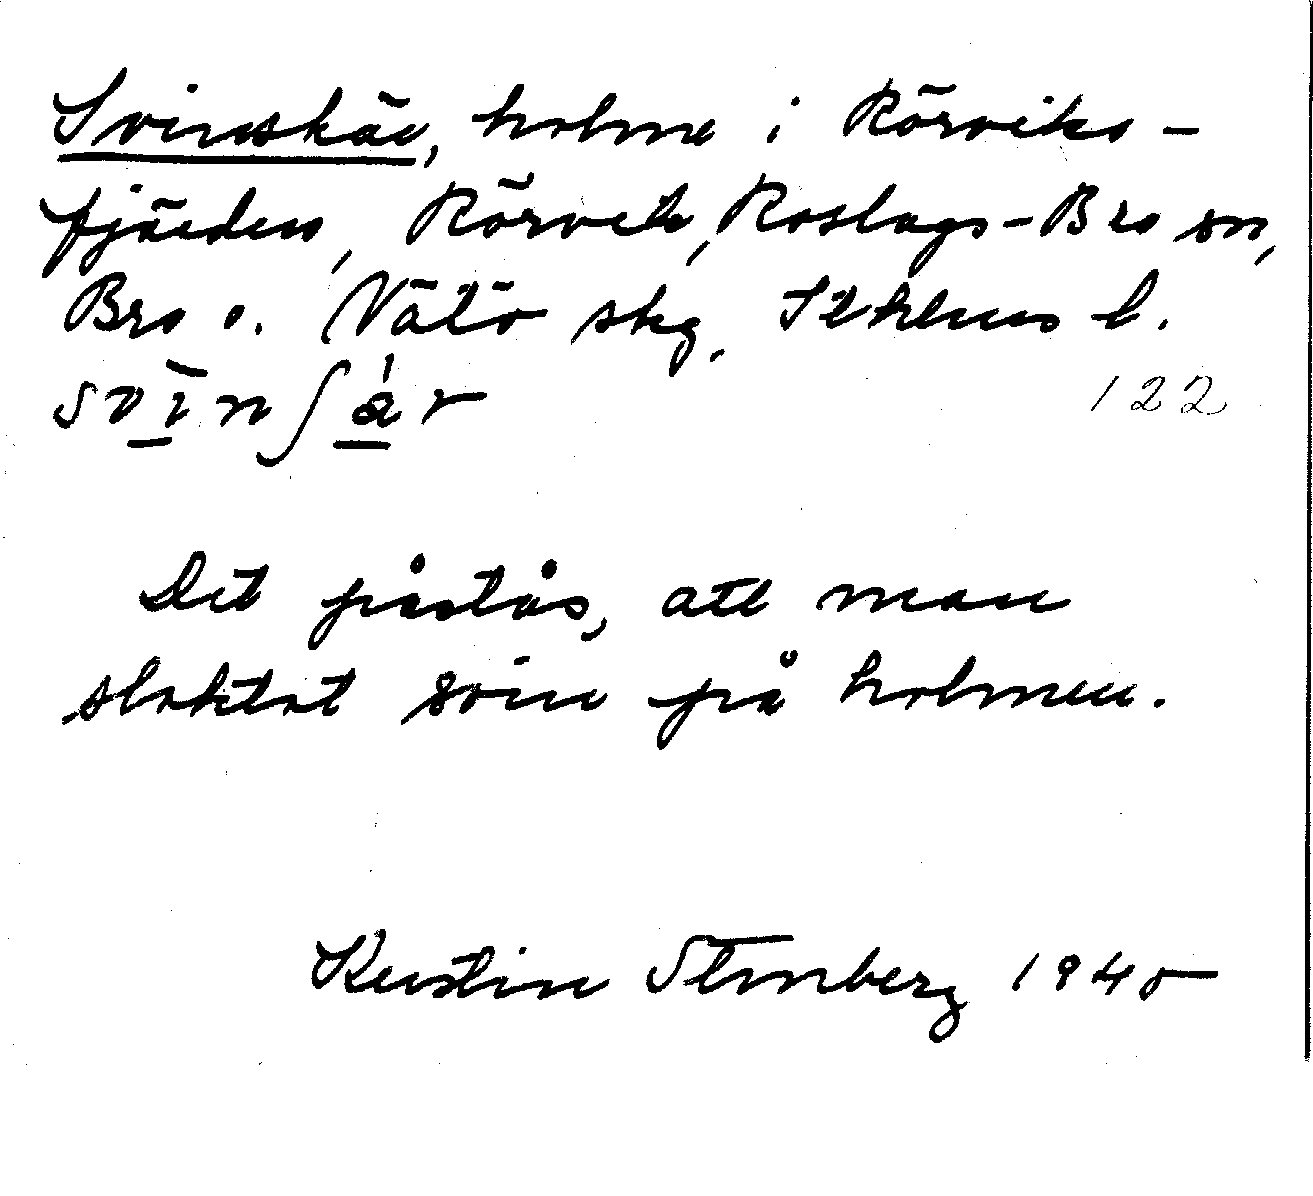 Svinskär, holme i Rörviks-
fjärden, Rörvik, Roslags-Bro sn,
Bro o. Vätö skg. Sthlms l.
svinʃär
122
Det påstås, att man
slaktat svin på holmen.
Kerstin Stenberg 1940